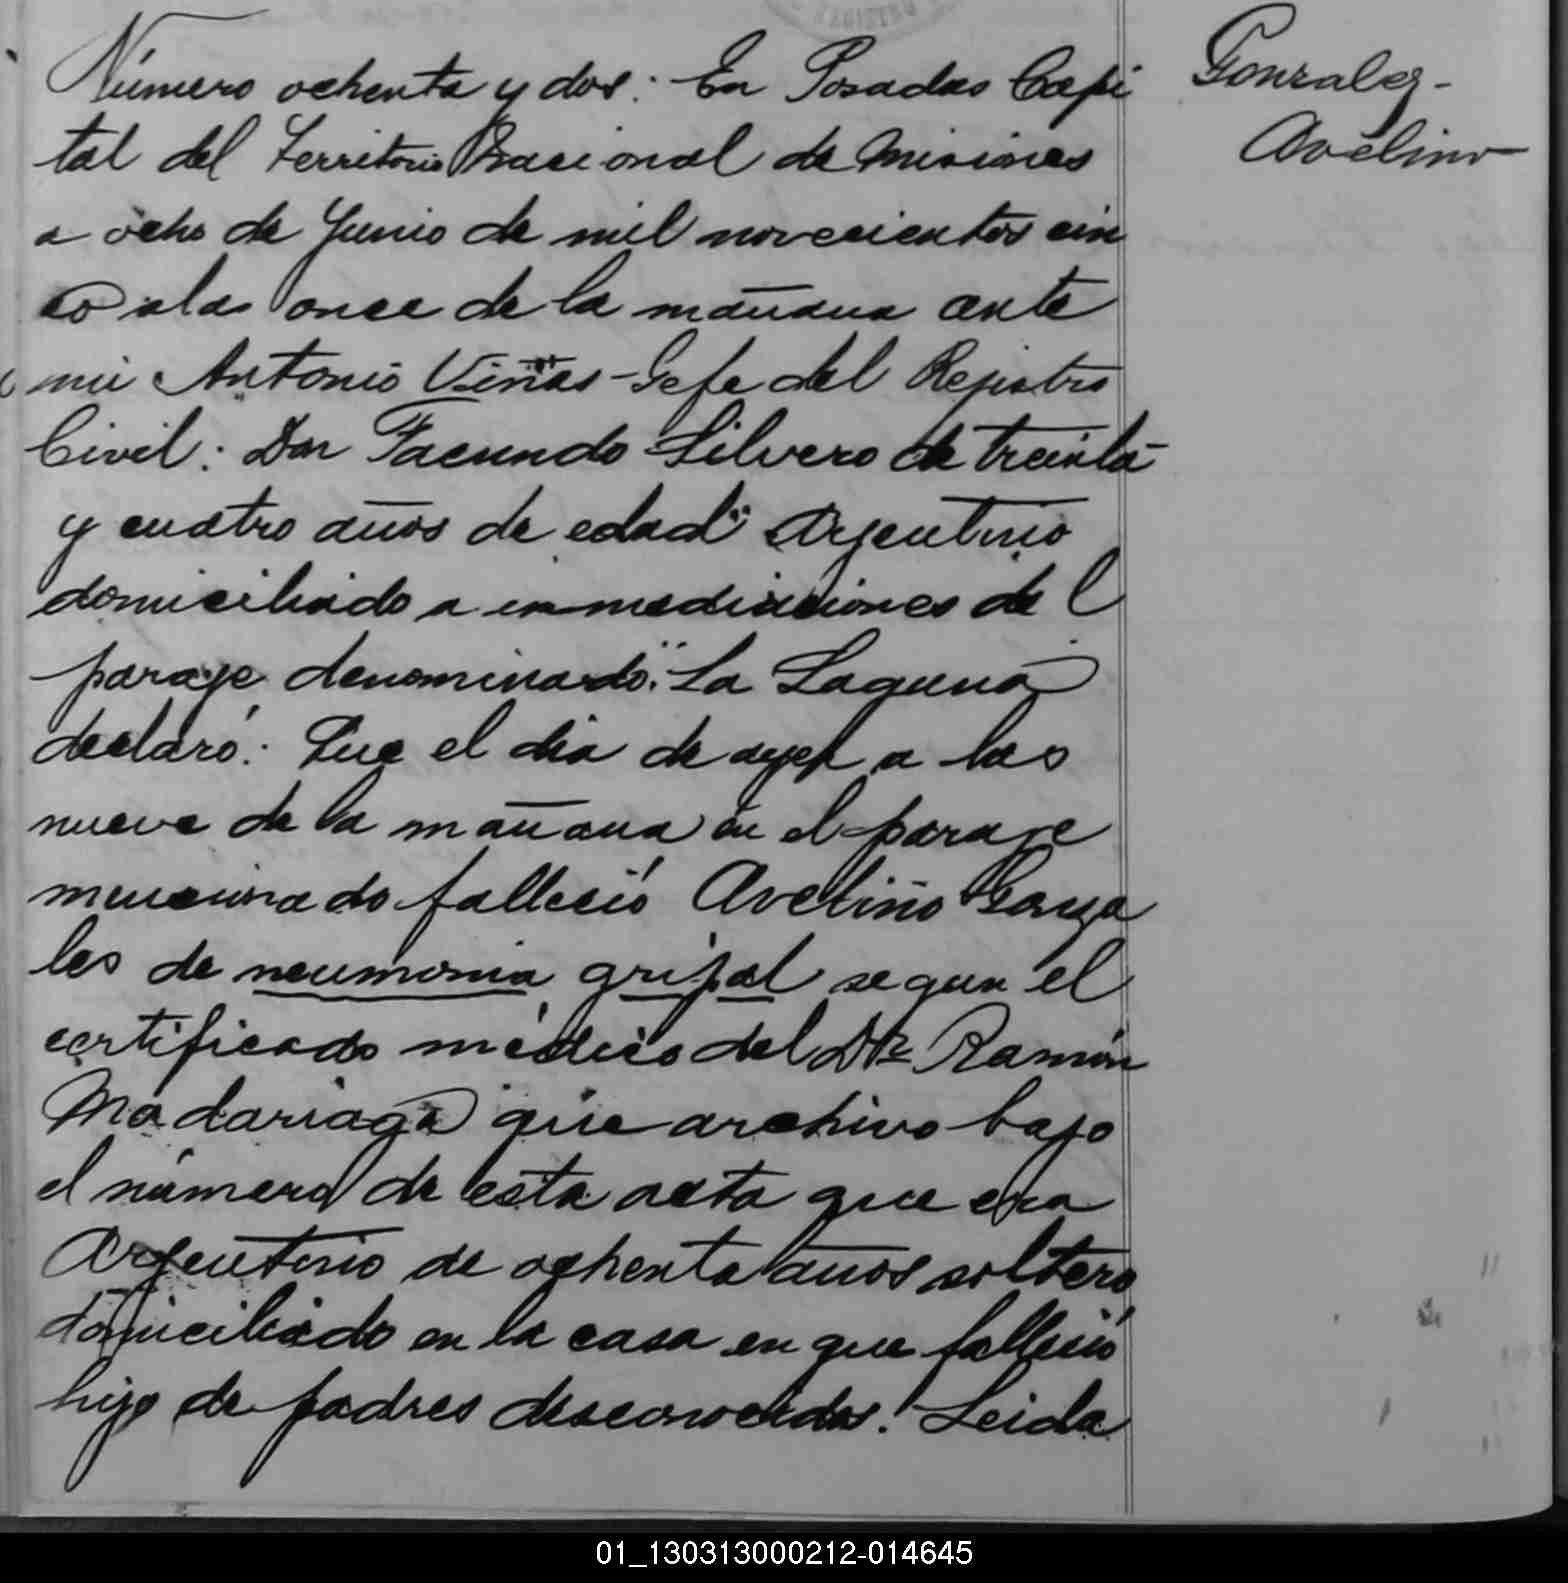 Número ochenta y dos. En Posadas Capi
tal del Territorio Nacional de Misiones
a ocho de Junio de mil novecientos cin
co a las once de la mañana ante
mi Antonio Viñas Gefe del Registro
Civil: Don Facundo Silvero de treinta
y cuatro años de edad Argentino
domiciliado a inmediaciones del
paraje denominado "La Laguna"
declaró: Que el dia de ayer a las
nueve de la mañana en el paraje
mencionado falleció Avelino Gonza
les de neumonia gripal segun el
certificado médico del Dr Ramón
Madariaga que archivo bajo
el número de esta acta que era
Argentino de ochenta años soltero
domiciliado en la casa en que falleció
hijo de padres desconocidos. Leida
Gonzalez-
Avelino
01_130313000212-014645